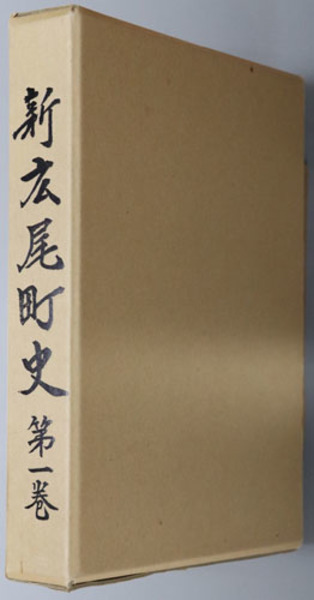 新広尾町史 第一巻